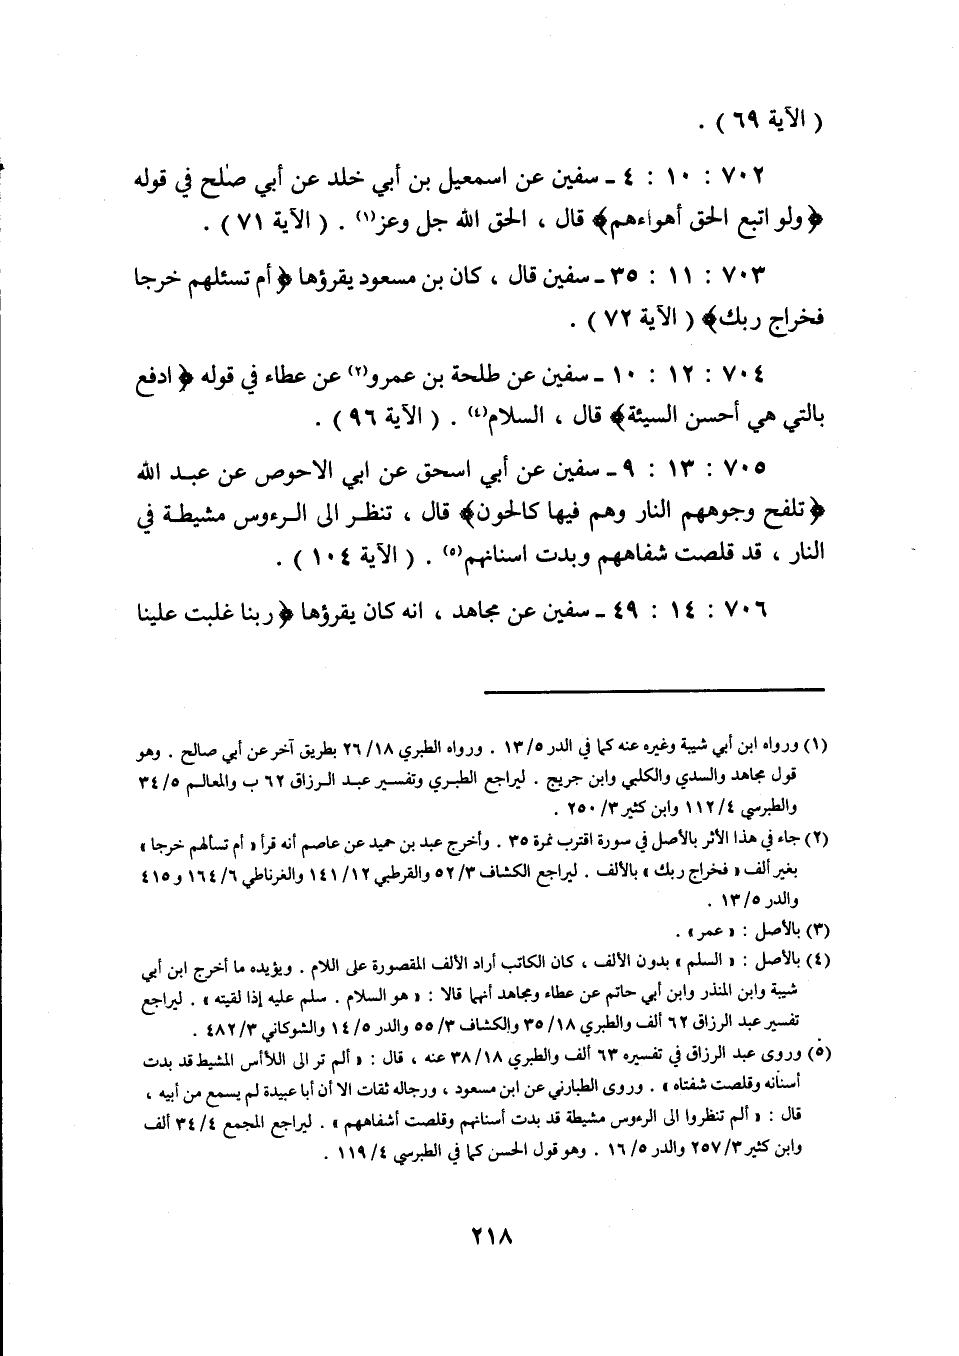 ( الآية ٦٩ ) .
٧٠٢ : ١٠ : ٤ ـ سفين عن اسمعيل بن أبي خلد عن أبي صٰلح في قوله
﴿ولو اتبع الحق أهواءهم﴾ قال ، الحق الله جل وعز(١) . ( الآية ٧١ ) .
٧٠٣ : ١١ : ٣٥ ـ سفين قال ، كان بن مسعود يقرؤها ﴿أم تسئلهم خرجا
فخراج ربك﴾ ( الآية ٧٢ ) .
٧٠٤ : ١٢ : ١٠ ـ سفين عن طلحة بن عمرو(٢) عن عطاء في قوله ﴿ادفع
بالتي هي أحسن السيئة﴾ قال ، السلام(٤) . ( الآية ٩٦ ) .
٧٠٥ : ١٣ : ٩ ـ سفين عن أبي اسحق عن ابي الاحوص عن عبد الله
﴿تلفح وجوههم النار وهم فيها كالحون﴾ قال ، تنظر الى الرءوس مشيطة في
النار ، قد قلصت شفاههم وبدت اسنانهم(٥) . ( الآية ١٠٤ ) .
٧٠٦ : ١٤ : ٤٩ ـ سفين عن مجاهد ، انه كان يقرؤها ﴿ربنا غلبت علينا
(١) ورواه ابن أبي شيبة وغيره عنه كما في الدر ٥/ ١٣ . ورواه الطبري ١٨/ ٢٦ بطريق آخر عن أبي صالح . وهو
قول مجاهد والسدي والكلبي وابن جريج . ليراجع الطبري وتفسير عبد الرزاق ٦٢ ب والمعالم ٥/ ٣٤
والطبرسي ٤/ ١١٢ وابن كثير ٣/ ٢٥٠ .
(٢) جاء في هذا الأثر بالأصل في سورة اقترب نمرة ٣٥ . وأخرج عبد بن حميد عن عاصم أنه قرأ « أم تسألهم خرجا »
بغير ألف « فخراج ربك » بالألف . ليراجع الكشاف ٣/ ٥٢ والقرطبي ١٢/ ١٤١ والغرناطي ٦/ ١٦٤ و ٤١٥
والدر ٥/ ١٣ .
(٣) بالأصل : « عمر » .
(٤) بالأصل : « السلم » بدون الألف ، كان الكاتب أراد الألف المقصورة على اللام . ويؤيده ما أخرج ابن أبي
شيبة وابن المنذر وابن أبي حاتم عن عطاء ومجاهد أنهما قالا : « هو السلام . سلم عليه إذا لقيته » . ليراجع
تفسير عبد الرزاق ٦٢ ألف والطبري ١٨/ ٣٥ والكشاف ٣/ ٥٥ والدر ٥/ ١٤ والشوكاني ٣/ ٤٨٢ .
(٥) وروى عبد الرزاق في تفسيره ٦٣ ألف والطبري ١٨/ ٣٨ عنه ، قال : « ألم تر الى اللأأس المشيط قد بدت
أسنانه وقلصت شفتاه » . وروى الطبارني عن ابن مسعود ، ورجاله ثقات الا أن أبا عبيدة لم يسمع من أبيه ،
قال : « ألم تنظروا الى الرءوس مشيطة قد بدت أسنانهم وقلصت أشفاههم » . ليراجع المجمع ٤/ ٣٤ ألف
وابن كثير ٣/ ٢٥٧ والدر ٥/ ١٦ . وهو قول الحسن كما في الطبرسي ٤/ ١١٩ .
٢١٨